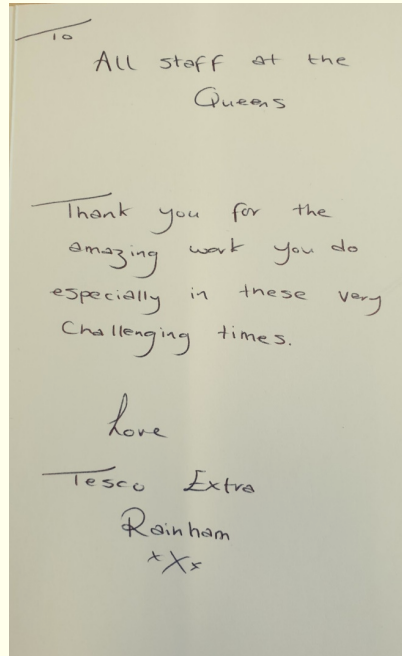 To
All staff at the
Queens
Thank you for the
amazing work you do
especially in these very
Challenging times.
Love
Tesco Extra
Rainham
xXx